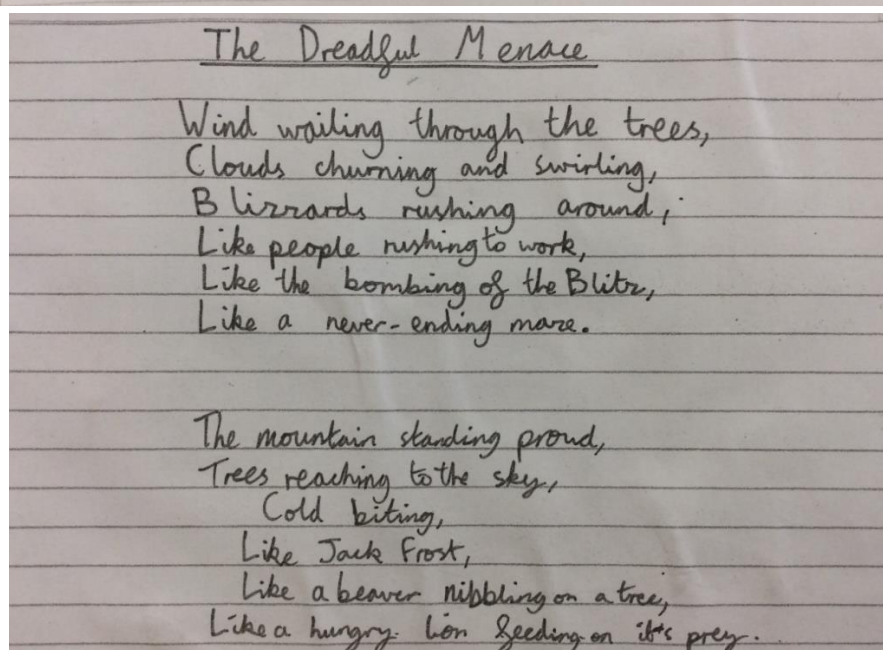 The Dreadful Menace
Wind wailing through the trees,
Clouds churning and swirling,
Blizzards rushing around,
Like people rushing to work,
Like the bombing of the Blitz,
Like a never-ending maze.
The mountain standing proud,
Trees reaching to the sky,
Cold biting,
Like Jack Frost,
Like a beaver nibbling on a tree,
Like a hungry lion feeding on it's prey.